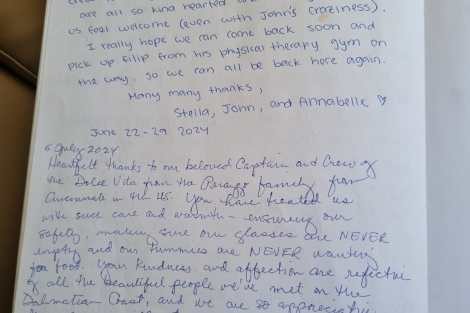 are all so kind hearted
us feel welcome (even with John's craziness).
I really hope we can come back soon and
pick up Filip from his physical therapy gym on
the way. So we can all be back here again.
Many many thanks,
Stella, John, and Annabelle
June 22-29 2024
6 July 2024
Heartfelt thanks to our beloved Captain and Crew of
the Dolce Vita from the family from
Cincinnati in the US. You have treated us
with such care and warmth - ensuring our
safety, making sure our glasses are NEVER
empty and our tummies are NEVER wanting
for food. Your kindness and affection are reflective
of all the beautiful people we've met on the
Dalmatian Coast, and we are so appreciative